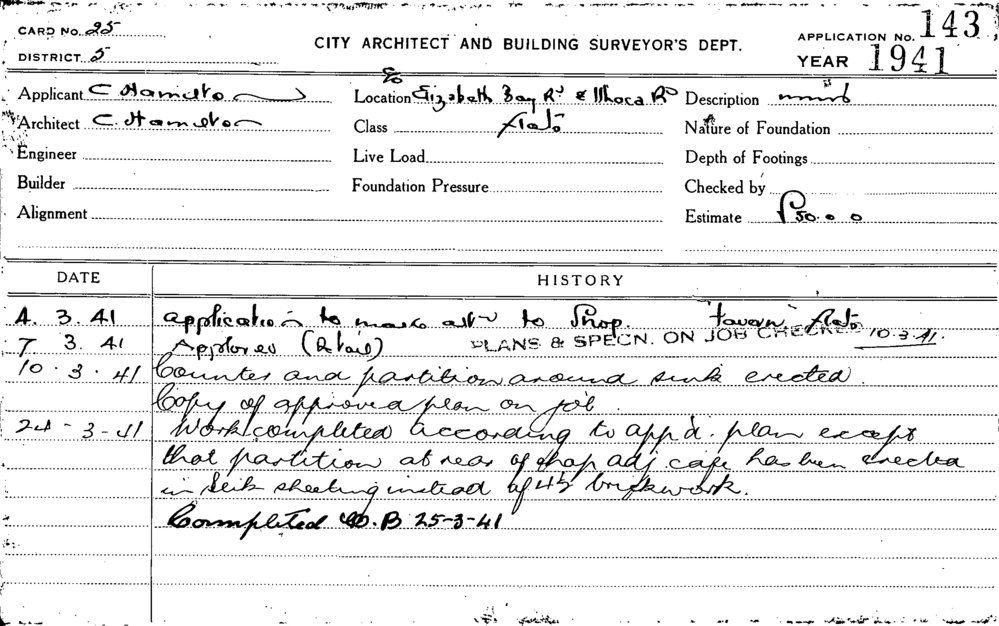 CARD No. 25
DISTRICT. 5
CITY ARCHITECT AND BUILDING SURVEYOR'S DEPT.
APPLICATION No. 143
YEAR 1941
Applicant C Hamilton
Location Elizabeth Bay Rd & Ithaca Rd
Description
Architect C. Hamilton
Class Flats
Nature of Foundation
Engineer
Live Load
Depth of Footings
Builder
Foundation Pressure
Checked by
Alignment
Estimate £50.0.0
DATE
HISTORY
4. 3. 41 application to make altn to Shop. Flats
7 3. 41 Approved (Retail) PLANS & SPECN. ON JOB CHECKED 10.3.41.
10. 3. 41 Counter and partition around sink erected.
Copy of approved plan on job
24-3-41 Work completed according to app'd. plan except
that partition at rear of shop adj. cafe has been erected
in sheeting instead of 4½ brickwork.
Completed 25-3-41